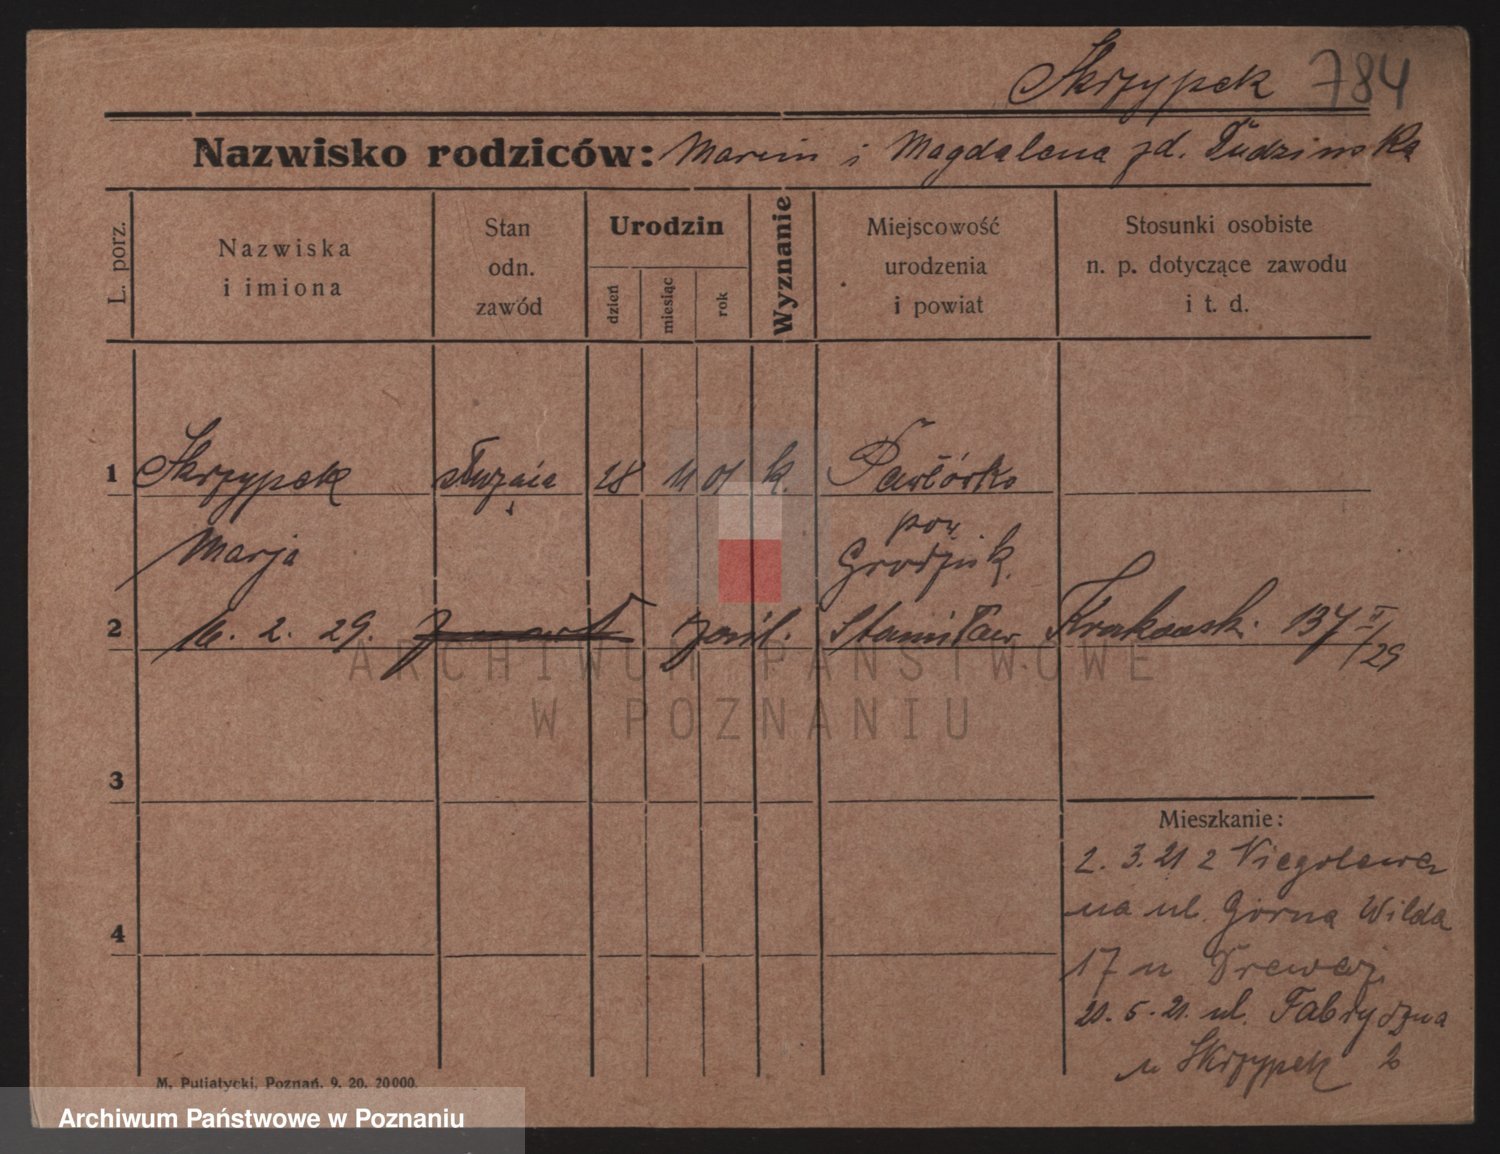 Skrzypek 784
Nazwisko rodziców: Marcin i Magdalena zd. Dudzinska
L. porz.
Nazwiska
i imiona
Stan
odn.
zawód
Urodzin
dzień
miesiąc
rok
Wyznanie
Miejscowość
urodzenia
i powiat
Stosunki osobiste
n. p. dotyczące zawodu
i t. d.
1 Skrzypek służąca 28 11 01 k.
pow
Marja Grodzisk.
2 16. 2. 29. Stanisław Krakowsk. 137 II/29
ARCHIWUM PAŃSTWOWE
W POZNANIU
3
Mieszkanie:
2. 3. 21 z Niegolewa
4 na ul. Górna Wilda
17 u
20. 5. 21. ul. Fabryczna
u Skrzypek
M. Putiatycki, Poznań. 9. 20. 20000.
Archiwum Państwowe w Poznaniu